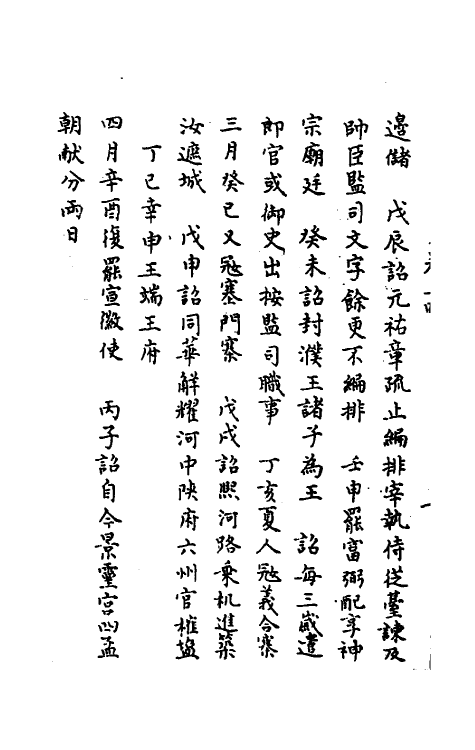 邊儲　戊辰詔元祐章疏止編排宰執侍從臺諫及
帥臣監司文字餘更不編排　壬申罷富弼配享神
宗廟廷　癸未詔封濮王諸子為王　詔每三歲遣
郎官或御史出按監司職事　丁亥夏人冦義合寨
三月癸巳又冦塞門寨　戊戌詔熙河路乘机進築
汝遮城　戊申詔同華解耀河中陝府六州官榷塩
丁巳幸申王端王府
四月辛酉復罷宣徽使　丙子詔自今景靈宮四孟
朝献分两日